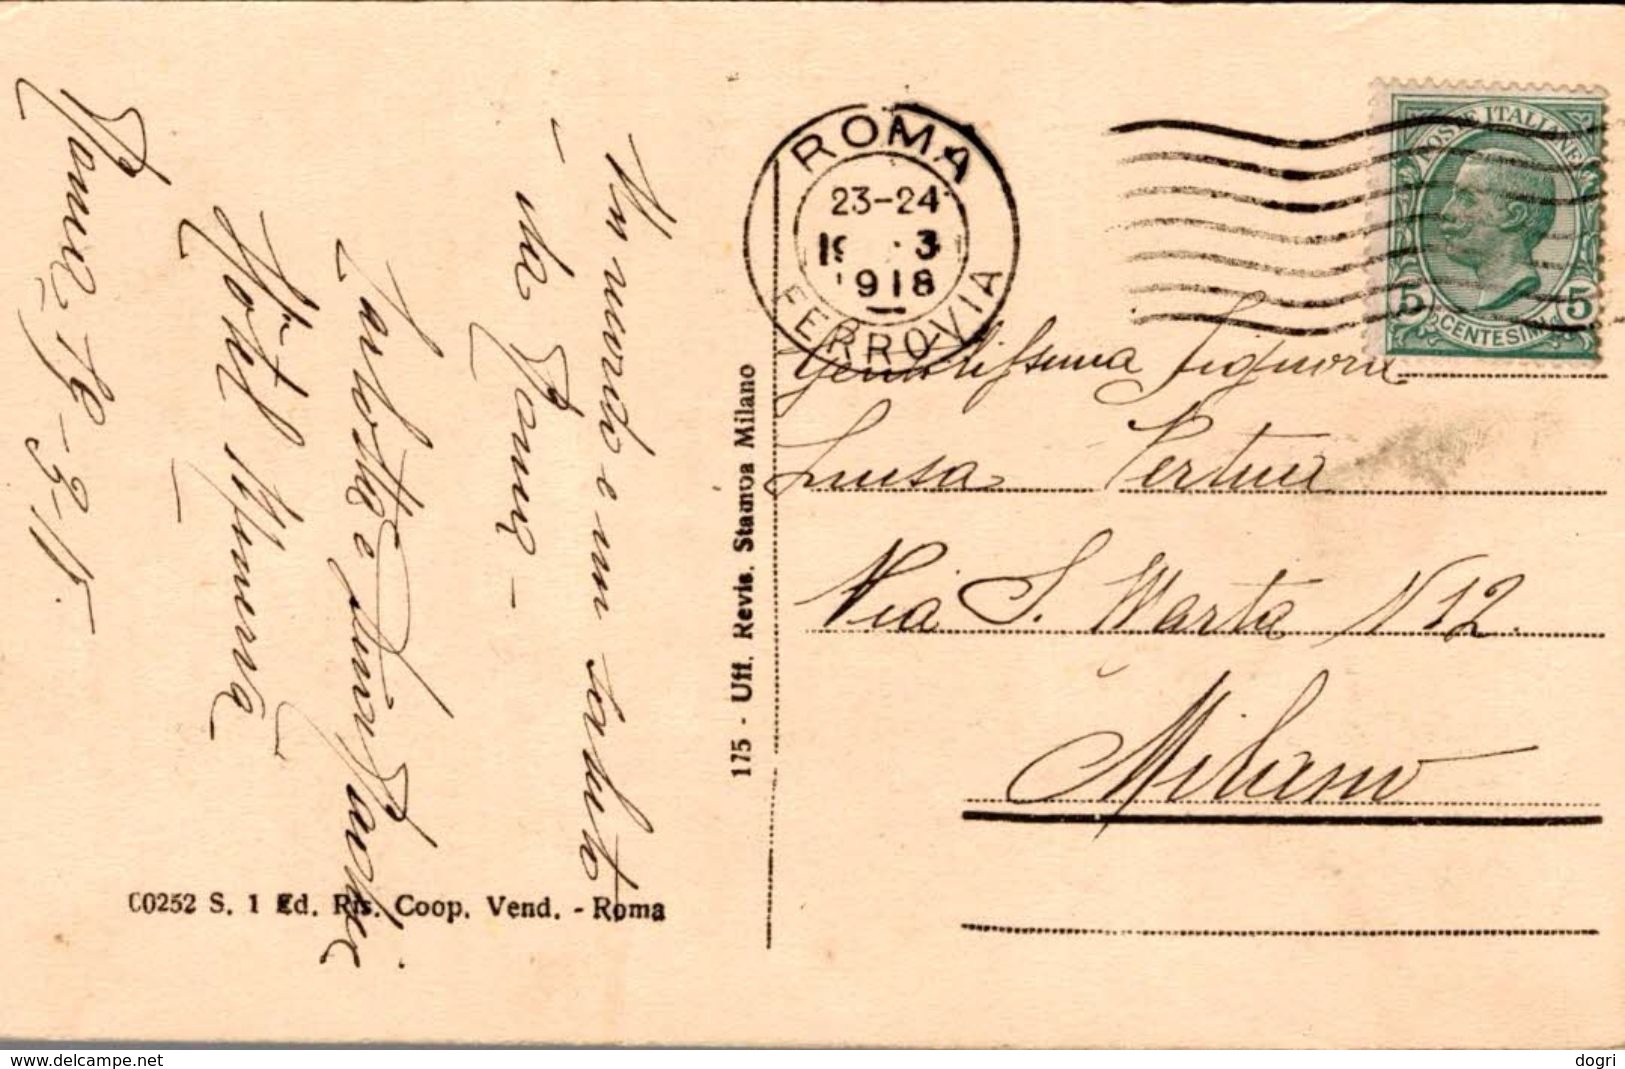 Un ricordo e un saluto
da Roma -
Carlotta e
Hôtel Minerva
Roma 19-3-18.
175 - Uff. Revis. Stampa Milano
C0252 S. 1 Ed. Ris. Coop. Vend. - Roma
ROMA
23-24
19 3
1918
FERROVIA
POSTE ITALIANE
5 CENTESIMI 5
Gentilissima Signora
Luisa
Via S. Marta N 12.
Milano
www.delcampe.net
dogri